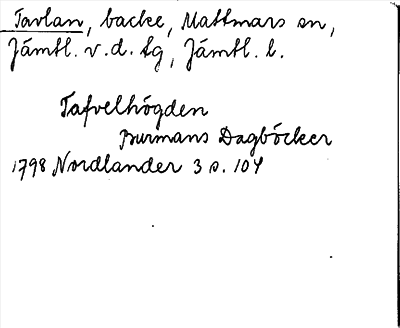 Tavlan, backe, Mattmars sn,
Jämtl. v. d. tg, Jämtl. l.
Tafvelhögden
Burmans Dagböcker
1798 Nordlander 3 s. 104